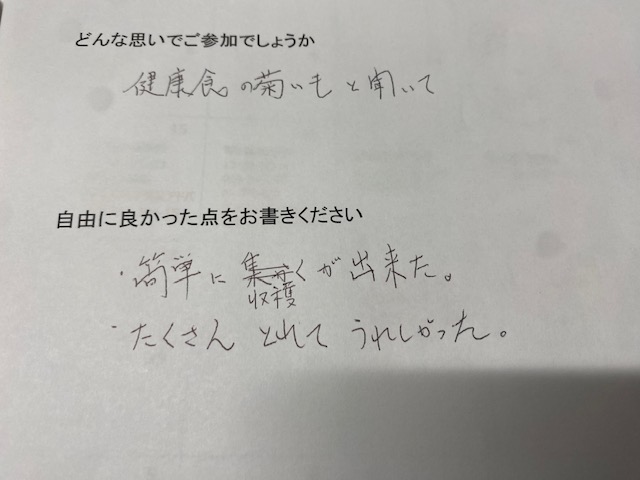 どんな思いでご参加でしょうか
健康食の菊いもと聞いて
自由に良かった点をお書きください
・簡単に収穫が出来た。
・たくさんとれてうれしかった。